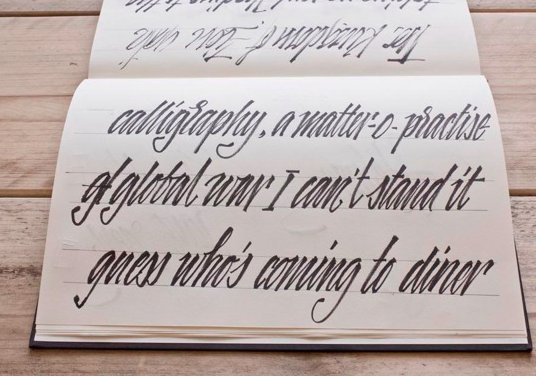 The Kingdom of
calligraphy, a matter-o-practise
gl global war I can't stand it
guess who's coming to diner